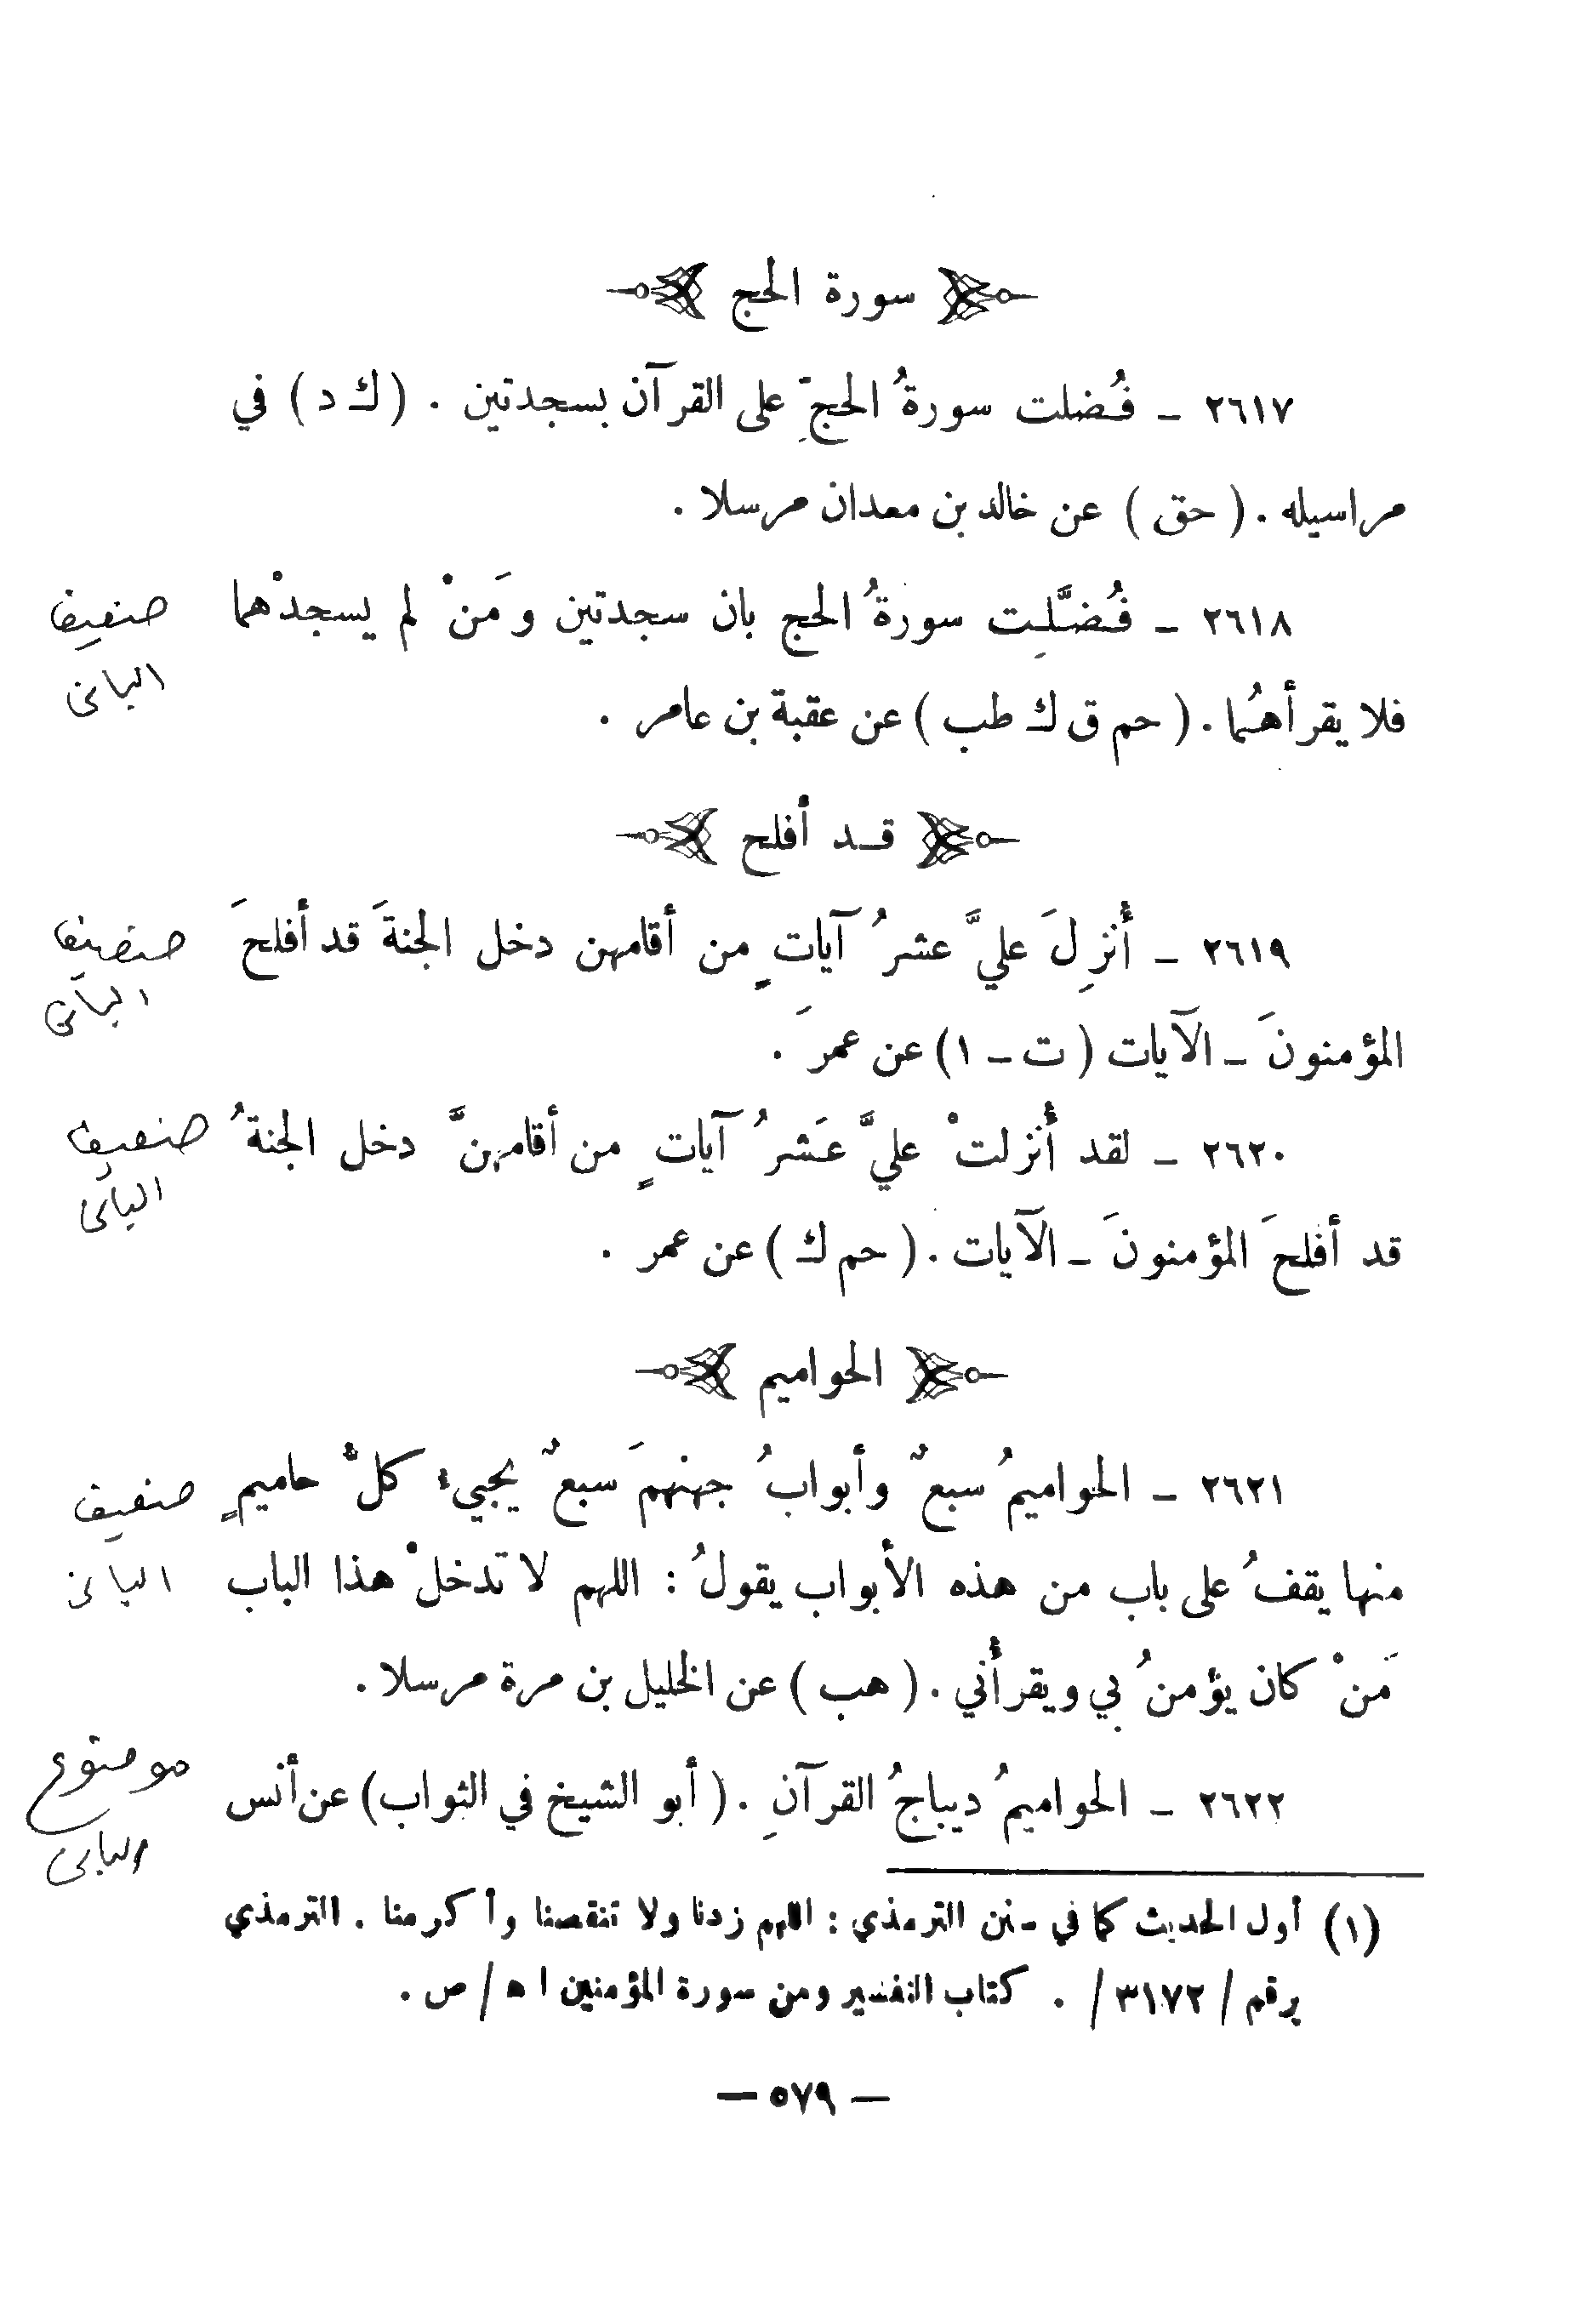 سورة الحج
٢٦١٧ - فُضلت سورةُ الحجِّ على القرآن بسجدتين . ( ك د ) في
مراسيله . ( حق ) عن خالد بن معدان مرسلا .
٢٦١٨ - فُضِّلت سورةُ الحج بان سجدتين ومَنْ لم يسجدْهما
ضعيف
الباني
فلا يقرأهُما . ( حم ق ك طب ) عن عقبة بن عامر .
قد أفلح
٢٦١٩ - أُنزِلَ عليَّ عشرُ آياتٍ من أقامهن دخل الجنةَ قد أفلحَ
ضعيف
الباني
المؤمنونَ - الآيات ( ت - ١ ) عن عمرَ .
٢٦٢٠ - لقد أُنزلتْ عليَّ عَشرُ آياتٍ من أقامهنَّ دخل الجنةُ
ضعيف
الباني
قد أفلحَ المؤمنونَ - الآيات . ( حم ك ) عن عمر .
الحواميم
٢٦٢١ - الحواميمُ سبعٌ وأبوابُ جهنمَ سبعٌ يجيءُ كلُّ حاميمٍ
ضعيف
منها يقفُ على باب من هذه الأبواب يقولُ : اللهم لا تدخلْ هذا الباب
الباني
مَنْ كان يؤمنُ بي ويقرأُني . ( هب ) عن الخليل بن مرة مرسلا .
٢٦٢٢ - الحواميمُ ديباجُ القرآنِ . ( أبو الشيخ في الثواب ) عن أنس
موضوع
الباني
(١) أول الحديث كما في سنن الترمذي : اللهم زدنا ولا تنقصنا وأكرمنا . الترمذي
برقم / ٣١٧٢ / . كتاب التفسير ومن سورة المؤمنين ا ه / ص .
— ٥٧٩ —